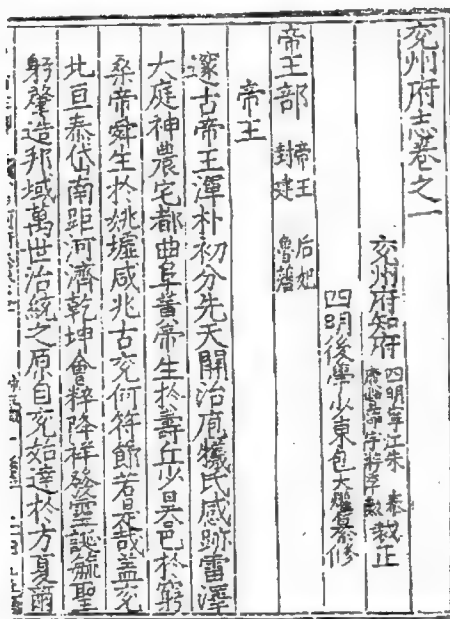 兖州府志卷之一
兖州府知府四明寧江朱泰
裁正
四明後學少東包大爟纂修
帝王部 帝王 后妃
封建 魯藩
帝王
邃古帝王渾朴初分先天開治庖犧氏感跡雷澤
大庭神農宅都曲阜黄帝生於壽丘少昊邑於窮
桑帝舜生於姚墟咸兆古兖何符節若是哉盖兖
北亘泰岱南距河濟乾坤會粹降祥發靈誕毓聖
躬肇造邦域萬世治統之原自兖始達於方夏爾